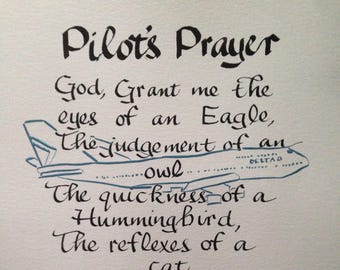 Pilot's Prayer
God, Grant me the
eyes of an Eagle,
The judgement of an
owl
DELTA
The quickness of a
Hummingbird,
The reflexes of a
cat